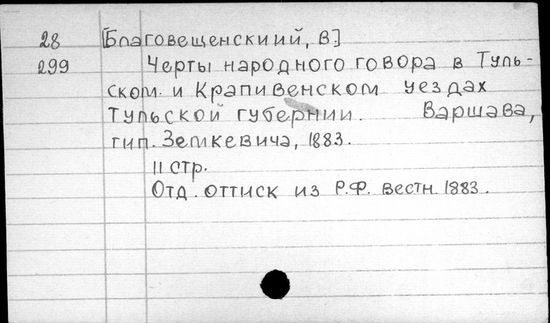 28 [Благовещенскиий, В.]
299 Черты народного говора в Туль-
ском. и Крапивенском уездах
Тульской губернии. Варшава,
тип. Земкевича, 1883.
11 стр.
Отд. оттиск из Р.Ф. вестн. 1883.